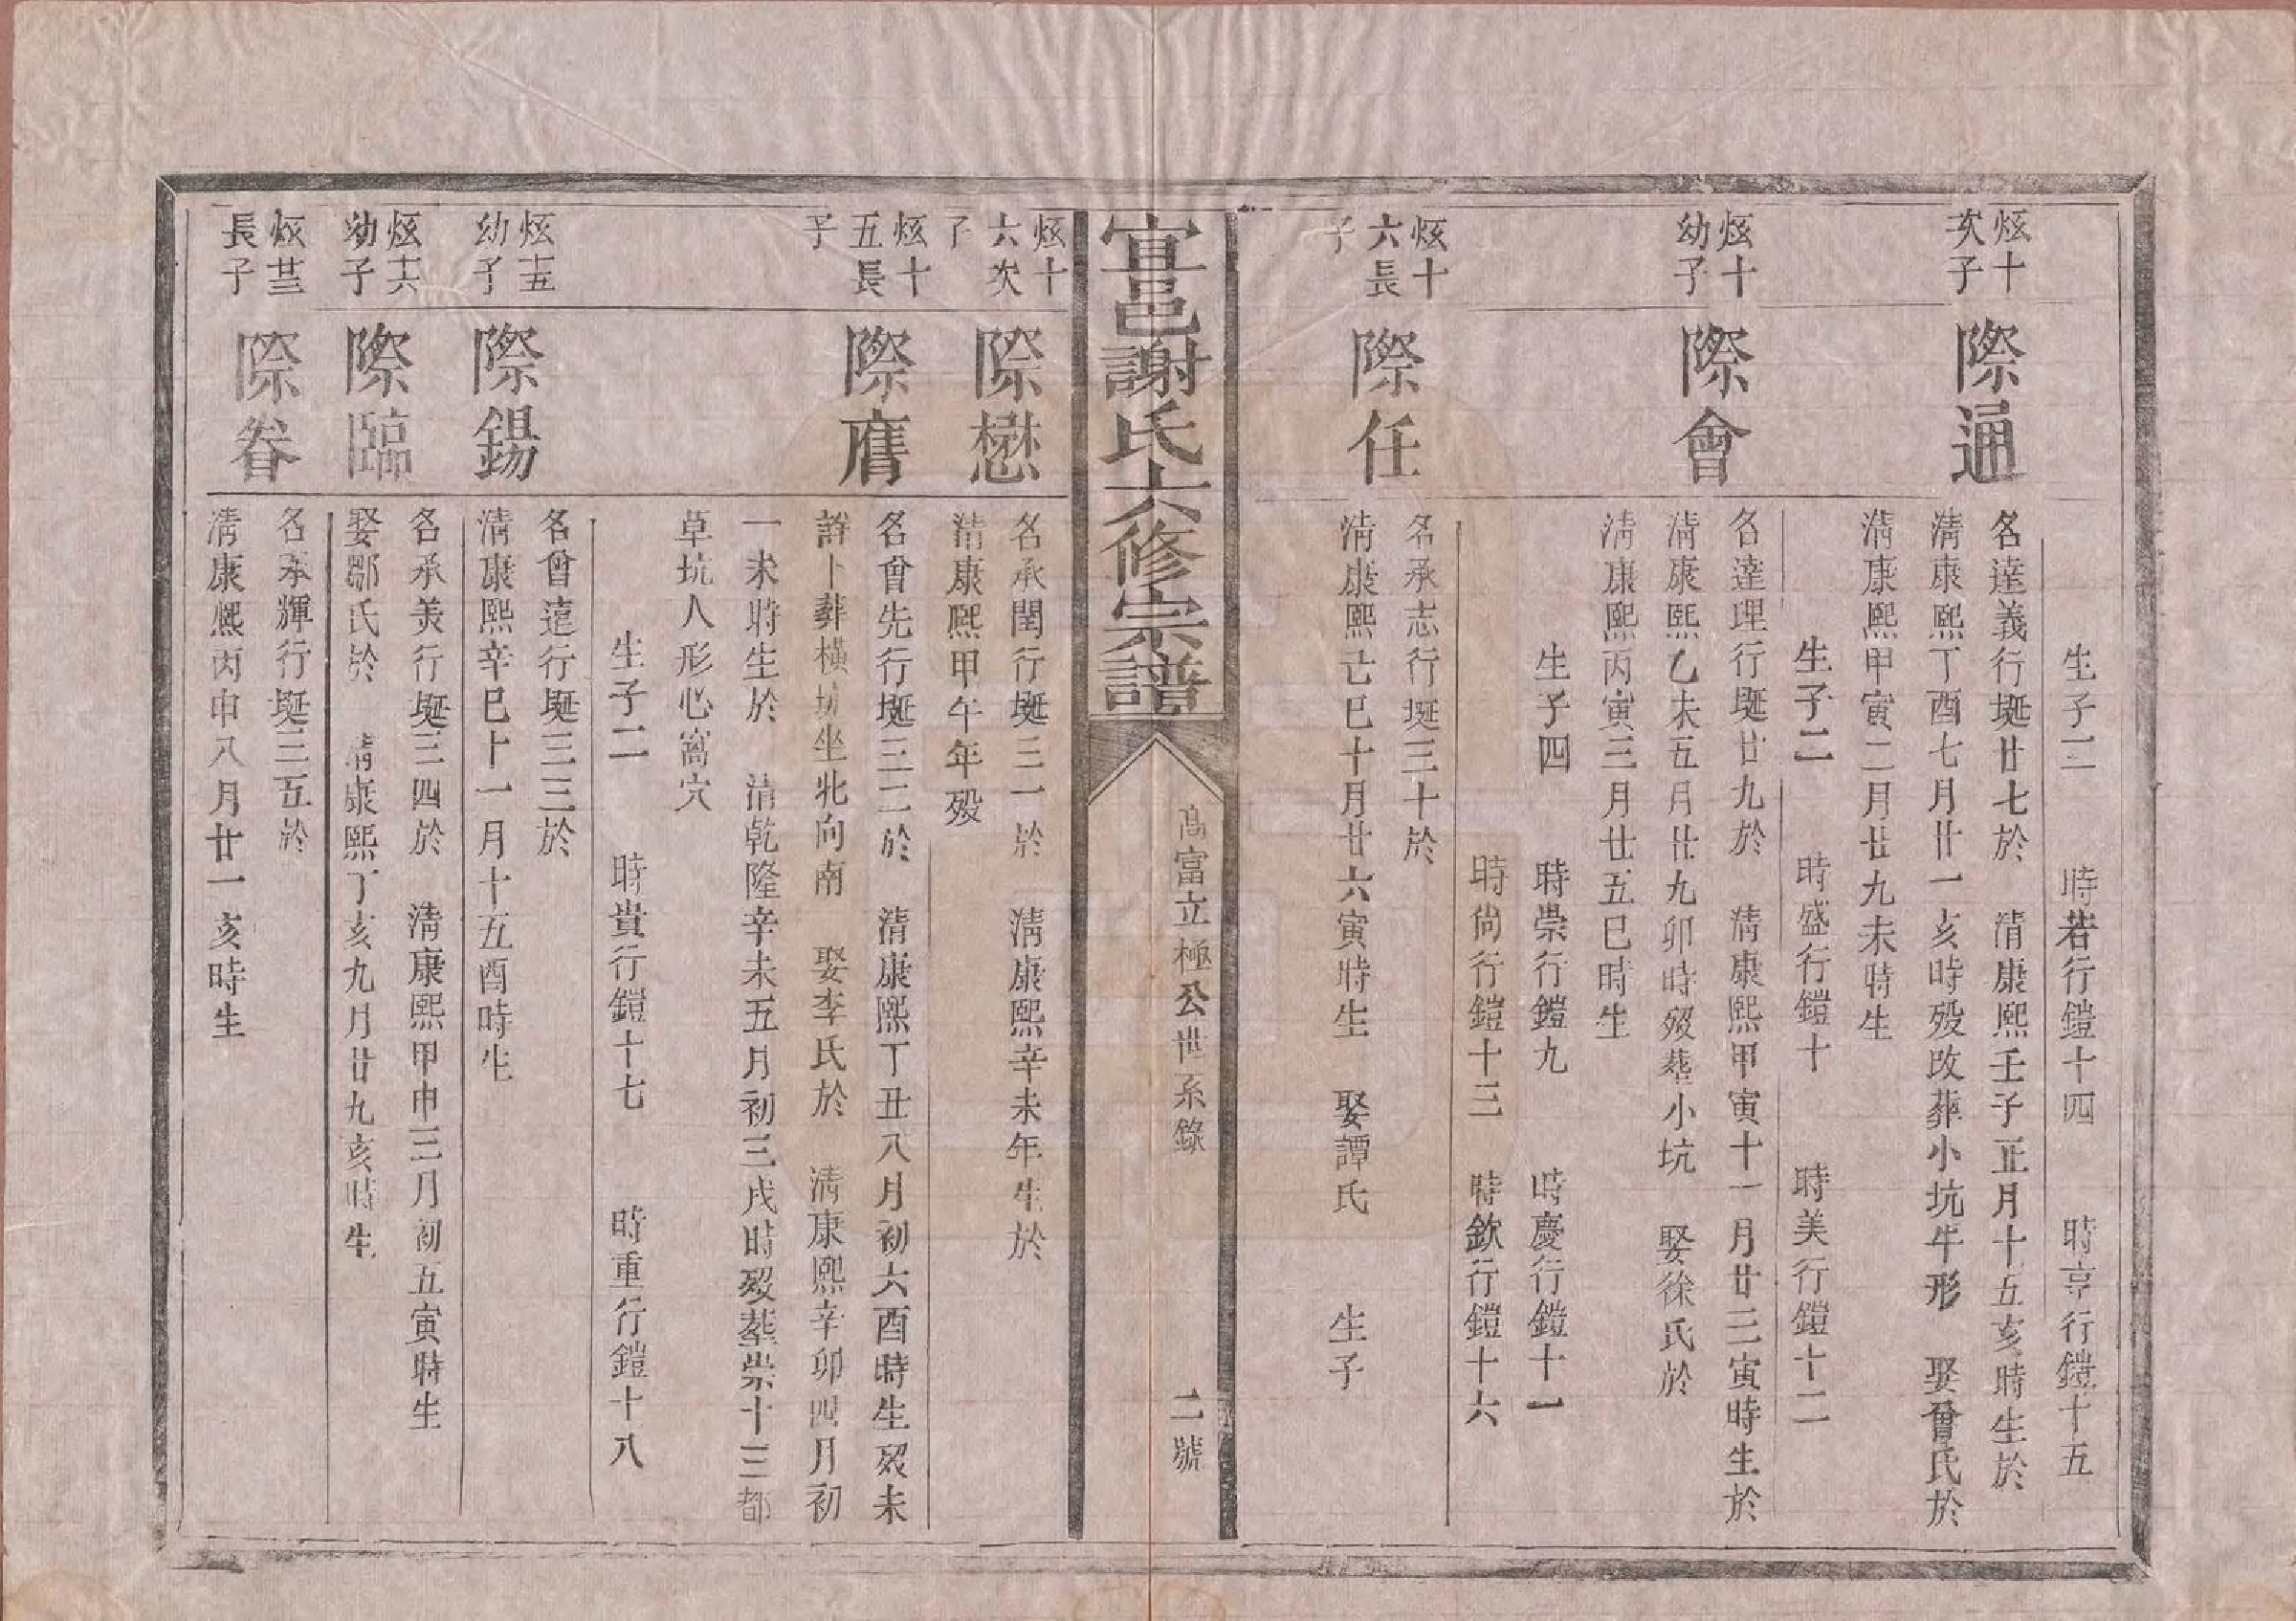 生子二　時若行鎧十四　時亨行鎧十五
炫十
次子
際通
名達義行埏廿七於　清康熙壬子正月十五亥時生於
清康熙丁酉七月廿一亥時殁改葬小坑牛形　娶曾氏於
清康熙甲寅二月廿九未時生
生子二　時盛行鎧十　時美行鎧十二
炫十
幼子
際會
名達理行埏廿九於　清康熙甲寅十一月廿三寅時生於
清康熙乙未五月廿九卯時殁塟小坑　娶徐氏於
清康熙丙寅三月廿五巳時生
生子四　時崇行鎧九　時慶行鎧十一
時尚行鎧十三　時欽行鎧十六
炫十
六長
子
際任
名承志行埏三十於
清康熙己巳十月廿六寅時生　娶譚氏　生子
宜邑謝氏六修宗譜
高富立極公世系錄　二號
炫十
六次
子
際懋
名承閏行埏三一於　清康熙辛未年生於
清康熙甲午年殁
炫十
五長
子
際膺
名曾先行埏三二於　清康熙丁丑八月初六酉時生殁未
詳卜葬橫坑坐北向南　娶李氏於　清康熙辛卯四月初
一未時生於　清乾隆辛未五月初三戌時殁塟崇十三都
草坑人形心窩穴
生子二　時貴行鎧十七　時重行鎧十八
炫十五
幼子
際錫
名曾遠行埏三三於
清康熙辛巳十一月十五酉時生
炫十六
幼子
際臨
名承美行埏三四於　清康熙甲申三月初五寅時生
娶鄒氏於　清康熙丁亥九月廿九亥時生
炫廿三
長子
際眷
名承輝行埏三五於
清康熙丙申八月廿一亥時生